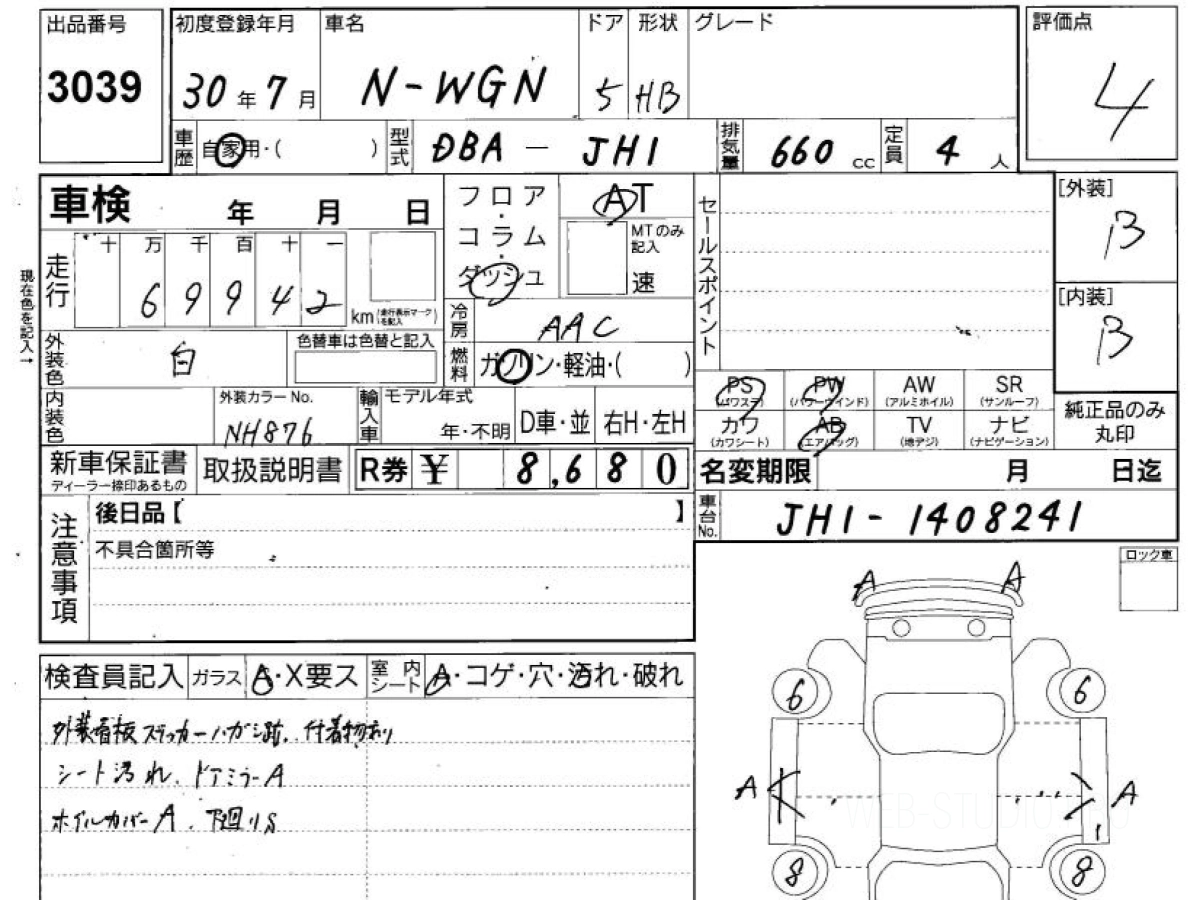 出品番号
3039
初度登録年月
30年7月
車名
N-WGN
ドア
5
形状
HB
グレード
評価点
4
車歴
自家用・( )
型式
DBA - JH1
排気量
660 cc
定員
4 人
車検 年 月 日
フロア・コラム・ダッシュ
AT
MTのみ記入
速
セールスポイント
[外装]
B
[内装]
B
現在色を記入→
走行
十 万 千 百 十 一
6 9 9 4 2
km (走行表示マークを記入)
冷房
AAC
外装色
白
色替車は色替と記入
燃料
ガソリン・軽油・( )
PS (パワステ)
PW (パワーウインド)
AW (アルミホイル)
SR (サンルーフ)
カワ (カワシート)
AB (エアバッグ)
TV (地デジ)
ナビ (ナビゲーション)
純正品のみ丸印
内装色
外装カラーNo.
NH876
輸入車
モデル年式
年・不明
D車・並
右H・左H
新車保証書
ディーラー捺印あるもの
取扱説明書
R券 ¥ 8,680
名変期限 月 日迄
車台No.
JH1-1408241
注意事項
後日品【 】
不具合箇所等
ロック車
A A
6 6
A A
8 8
検査員記入
ガラス
A・X要ス
室内シート
A・コゲ・穴・汚れ・破れ
外装看板ステッカーハガシ跡、付着物有り
シート汚れ、ドアミラーA
ホイルカバーA、下廻りS
WEB-STUDIO